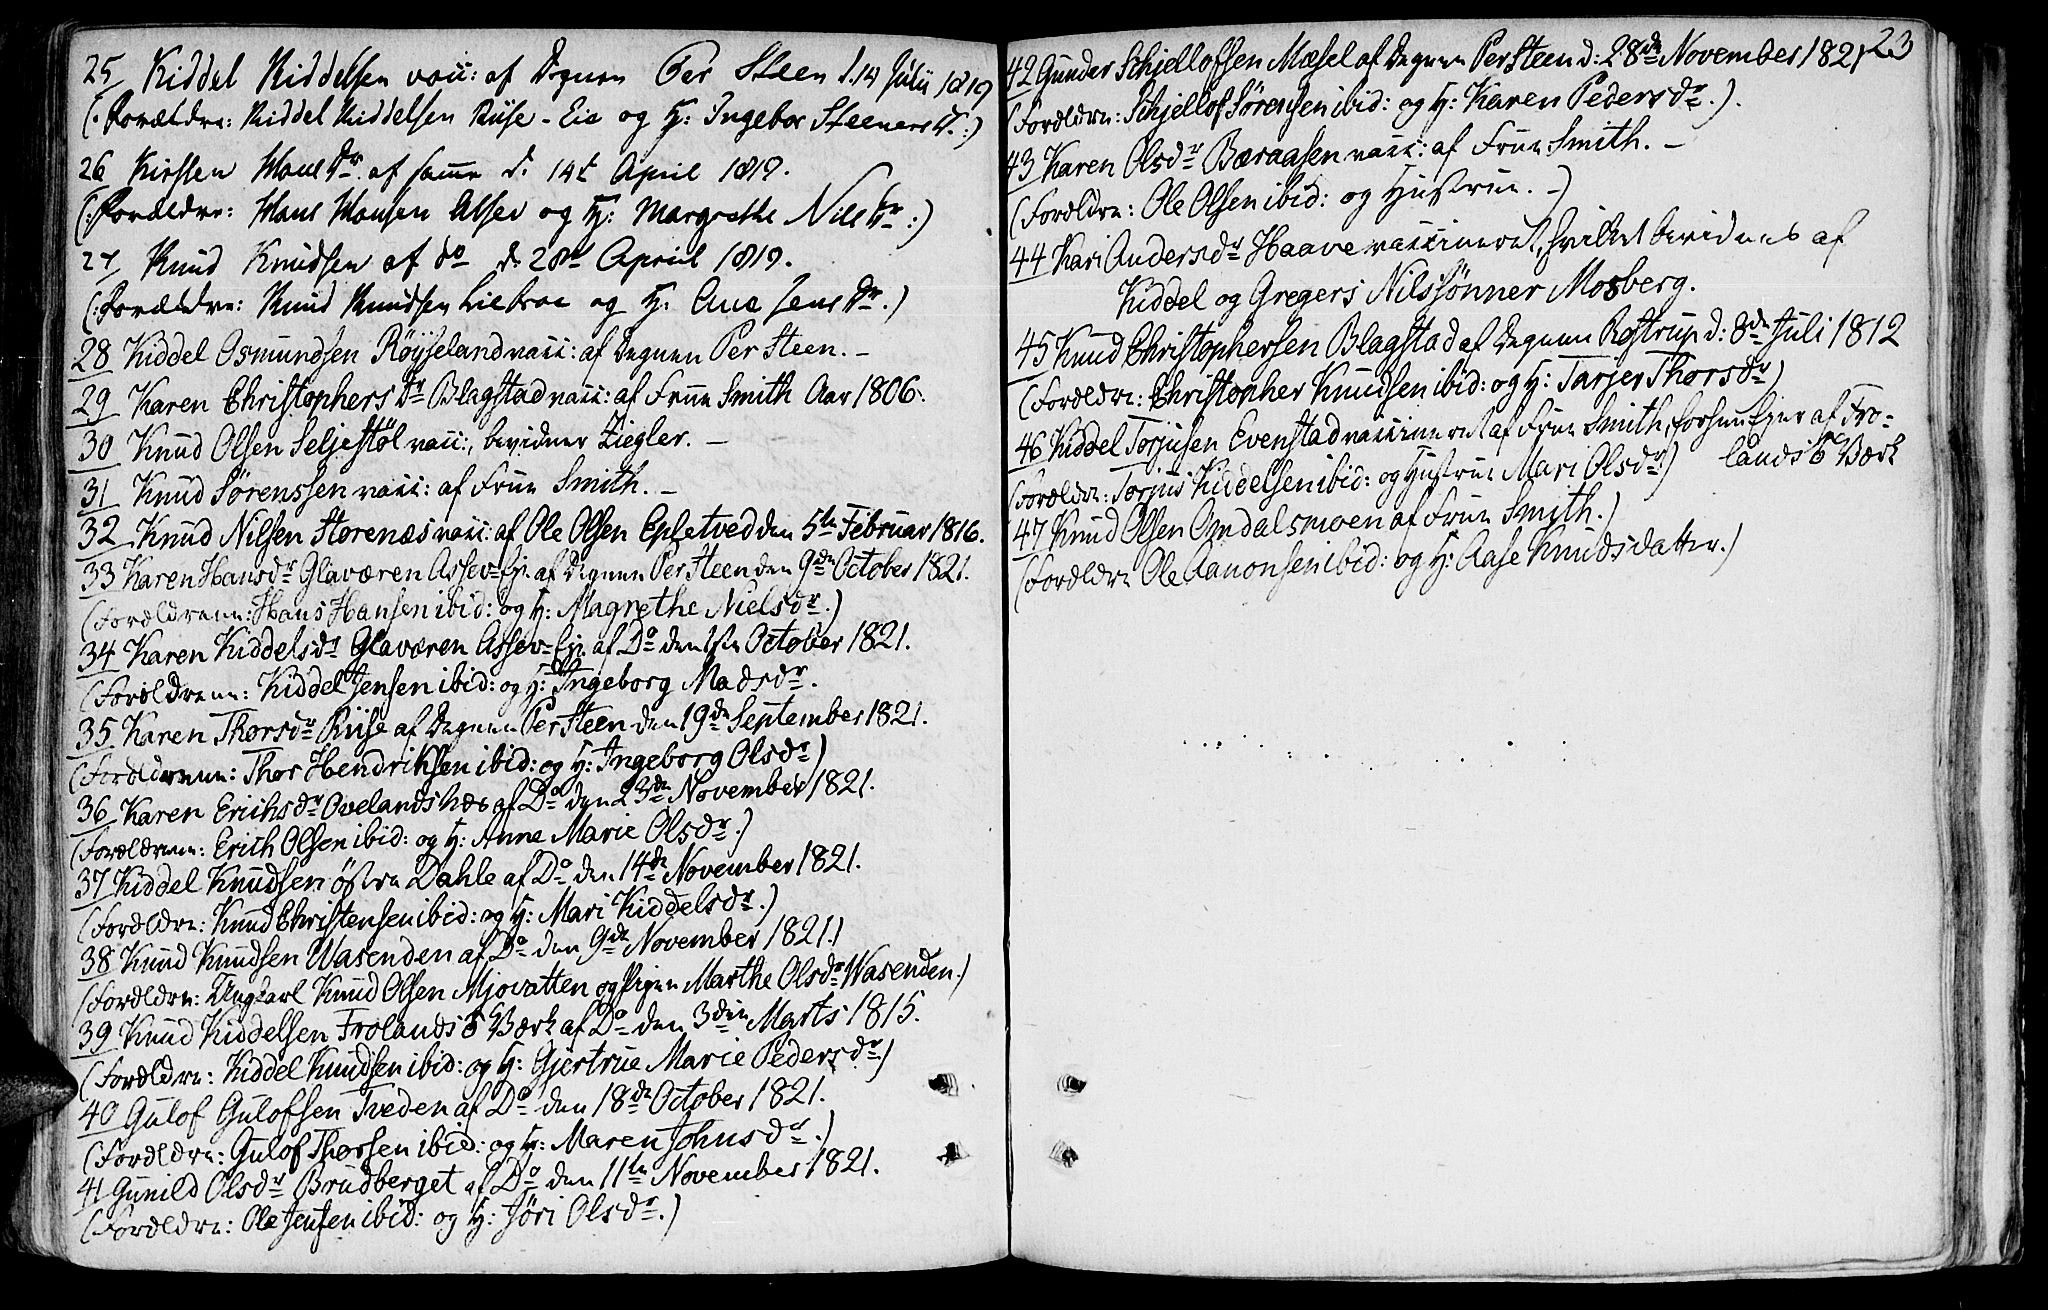 25 Kiddel Kiddelsen vacc: af Degnen Per Steen d. 14 Julii 1819
(: Forældre: Kiddel Kiddelsen Riise-Eie og H: Ingebor Steeners D. :)
26 Kirsten Hans Dr. af samme d. 14t April 1819.
(: Forældre: Hans Hansen Assev og H: Margrethe Nils Dr :)
27 Knud Knudsen af do d. 28t April 1819.
(: Forældre: Knud Knudsen Liebroe og H: Ane Jens Dr.)
28 Kiddel Osmundsen Röyseland vacc: af Degnen Per Steen. –
29 Karen Christophers Dr Blagstad vacc: af Frue Smith Aar 1806.
30 Knud Olsen Seljestöl vacc:, bevidner Ziegler. –
31 Knud Sørenssen vacc: af Frue Smith. –
32 Knud Nilsen Størenæs vacc: af Ole Olsen Epletved den 5te Februar 1816.
33 Karen Hansdr Glaværen Assev-Eje af Degnen Per Steen den 9de October 1821.
(Forældrene: Hans Hansen ibid: og H: Magrethe Nielsdr.)
34 Karen Kiddelsdr Glaværen Assev-Eje af Do den 1ste October 1821.
(Forældrene: Kiddel Jensen ibid: og H: Ingeborg Madsdr.
35 Karen Thorsdr Riise af Degnen Per Steen den 19de September 1821.
(Forældrene: Thor Hendriksen ibid: og H: Ingeborg Olsdr)
36 Karen Erichsdr Ovelandshæs af Do den 23de November 1821.
(Forældrene: Erich Olsen ibid: og H: Anne Marie Olsdr.)
37 Kiddel Knudsen östre Dahle af Do den 14de November 1821.
(Forældre: Knud Christensen ibid: og H: Mari Kiddelsdr.)
38 Knud Knudsen Wasenden af Do den 9de November 1821.)
(Forældre: Ungkarl Knud Olsen Mjovatten og Pigen Marthe Olsdr Wasenden.)
39 Knud Kiddelsen Frolands Værk af Do den 3die Marts 1815.
(Forældre: Kiddel Knudsen ibid: og H: Gjertrue Marie Pedersdr.)
40 Gulof Gulofsen Tveden af Do den 18de October 1821.
(Forældre: Gulof Thorsen ibid: og H: Maren Johnsdr.)
41 Gunild Olsdr Brudberget af Do den 11te November 1821.
(Forældre: Ole Jensen ibid: og H: Jöri Olsdr.)
23
42 Gunder Schjellofsen Mæsel af Degnen Per Steen d: 28de November 1821
(Forældre: Schjellof Sørensen ibid: og H: Karen Pedersdr.).
43 Karen Olsdr Bæraasen vacc: af Frue Smith. –
(Forældre: Ole Olsen ibid: og Hustrue. –)
44 Kari Andersdr Haave vaccineret, hvilket bevidnes af
Kiddel og Gregers Nilssønner Mosberg.
45 Knud Christophersen Blagstad af Degnen Rostrup d: 8de Juli 1812
(Forældre: Christopher Knudsen ibid: og H: Tarjer Thorsdr)
46 Kiddel Torjusen Evenstad vaccineret af Frue Smith, forhen Ejer af Fro-
lands Værk
(Forældre: Torjus Kiddelsen ibid: og Hustrue Mari Olsdr.)
47 Knud Olsen Omdalsmoen af Frue Smith.)
(Forældre Ole Aanonsen ibid: og H: Aase Knudsdatter.)